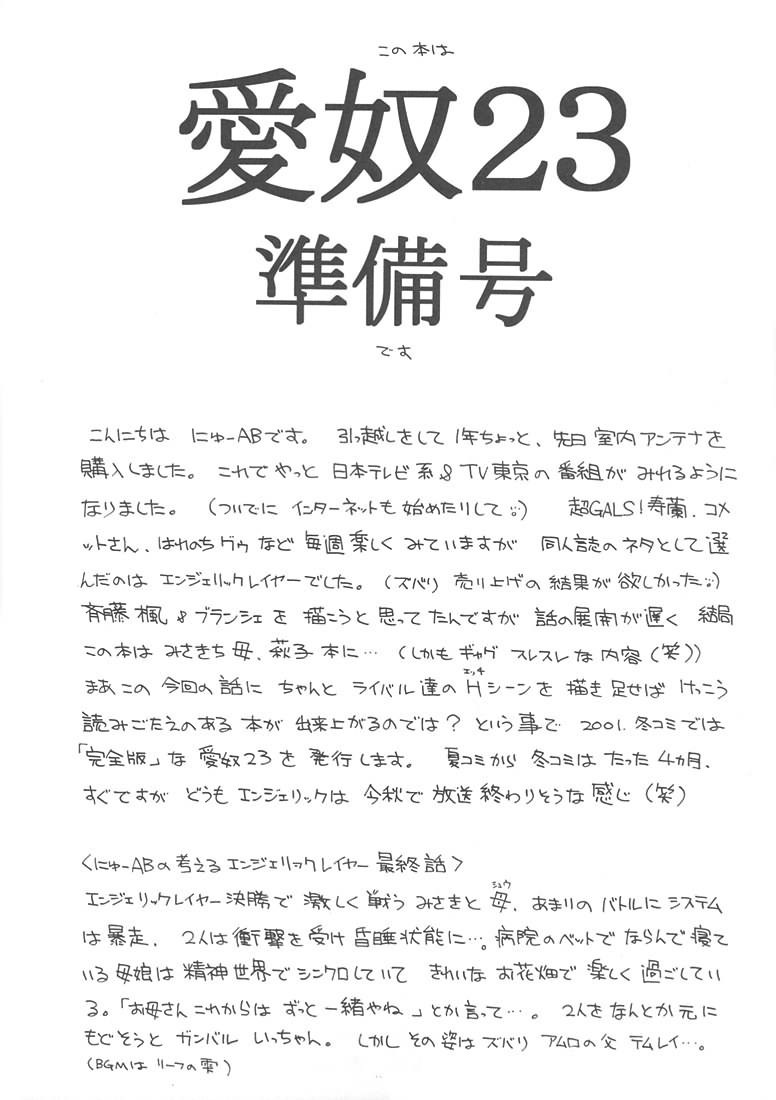 この本は
愛奴23
準備号
です
こんにちは にゅーABです。 引っ越しをして 1年ちょっと、先日 室内アンテナを
購入しました。 これで やっと 日本テレビ系 & TV東京の 番組が みれるように
なりました。 (ついでに インターネットも 始めたりして) 超GALS!寿蘭、コメ
ットさん、はれのちグゥ など 毎週 楽しく みていますが 同人誌のネタとして 選
んだのは エンジェリックレイヤーでした。(ズバリ 売り上げの 結果が 欲しかった)
斉藤 楓 & ブランシェ を 描こうと 思ってたんですが 話の展開が遅く 結局
この本は みさきち 母、萩子 本に… (しかも ギャグ スレスレ な 内容 (笑))
まあ この 今回の 話に ちゃんと ライバル 達の Hシーンを 描き 足せば けっこう
エッチ
読みごたえのある 本が 出来上がるのでは? という事で 2001.冬コミでは
「完全版」な 愛奴23を 発行します。 夏コミから 冬コミは たった 4ヵ月、
すぐですが どうも エンジェリックは 今秋で 放送 終わりそうな 感じ (笑)
<にゅーABの 考える エンジェリックレイヤー 最終話>
エンジェリックレイヤー 決勝で 激しく 戦う みさきと 母、あまりの バトルに システム
シュウ
は 暴走、 2人は 衝撃を 受け 昏睡状態に…。病院のベットで ならんで 寝て
いる 母娘は 精神世界で シンクロしていて きれいな お花畑で 楽しく 過ごしてい
る。「お母さん これからは ずっと 一緒やね」とか言って…。 2人を なんとか 元に
もどそうと ガンバル いっちゃん。 しかし その 姿は ズバリ アムロの父 テムレイ…。
(BGMは リーフの 雫)